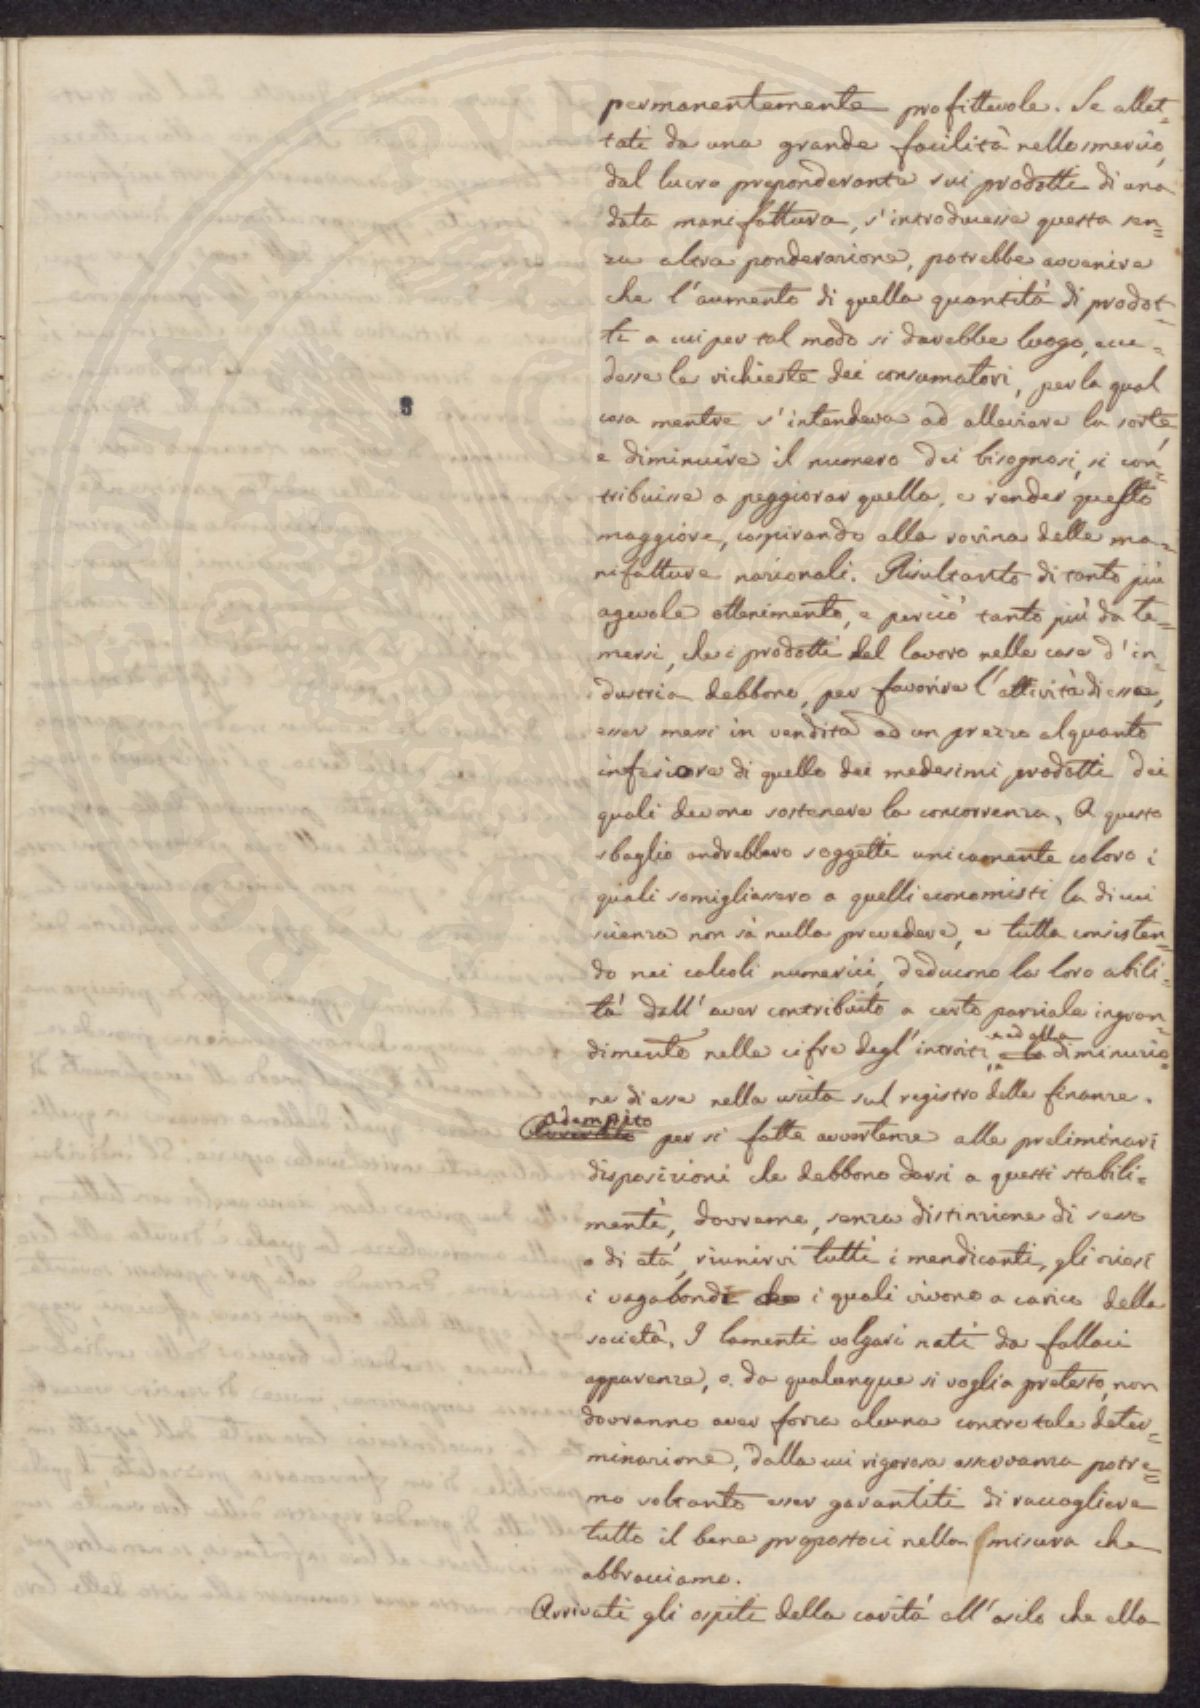 permanentemente profittevole. Se allet=
tati da una grande facilità nello smercio,
dal lucro preponderante sui prodotti di una
data manifattura, s'introducesse questa sen=
za altra ponderazione, potrebbe avvenire
che l'aumento di quella quantità di prodot=
ti a cui per tal modo si darebbe luogo, ecce=
desse le richieste dei consumatori, per la qual
cosa mentre s'intendeva ad alleviare la sorte,
e diminuire il numero dei bisognosi, si con=
tribuisse a peggiorar quella, e render questo
maggiore, cospirando alla rovina delle ma=
nifatture nazionali. Risultanto di tanto più
agevole ottenimento, e perciò tanto più da te=
mersi, che i prodotti del lavoro nelle case d'in=
dustria debbono, per favorire l'attività di esse,
esser messi in vendita ad un prezzo alquanto
inferiore di quello dei medesimi prodotti dei
quali devono sostenere la concorrenza. A questo
sbaglio andrebbero soggetti unicamente coloro i
quali somigliassero a quelli economisti la di cui
scienza non sà nulla prevedere, e tutta consisten=
do nei calcoli numerici, deducono la loro abili=
tà dall'aver contribuito a certo parziale ingran=
dimento nelle cifre degl'introiti, e ad alla diminuzio=
ne di esse nella uscita sul registro delle finanze.
adempito
per sì fatte avvertenze alle preliminari
disposizioni che debbono darsi a questi stabili=
menti, dovremo, senza distinzione di sesso
o di età, riunirvi tutti i mendicanti, gli oziosi
i vagabondi che i quali vivono a carico della
società. I lamenti volgari nati da fallaci
apparenze, o da qualunque si voglia pretesto, non
dovranno aver forza alcuna contro tale deter=
minazione, dalla cui rigorosa osservanza potre=
mo soltanto esser garantiti di raccogliere
tutto il bene propostoci nella misura che
abbracciamo.
Arrivati gli ospiti della carità all'asilo che ella